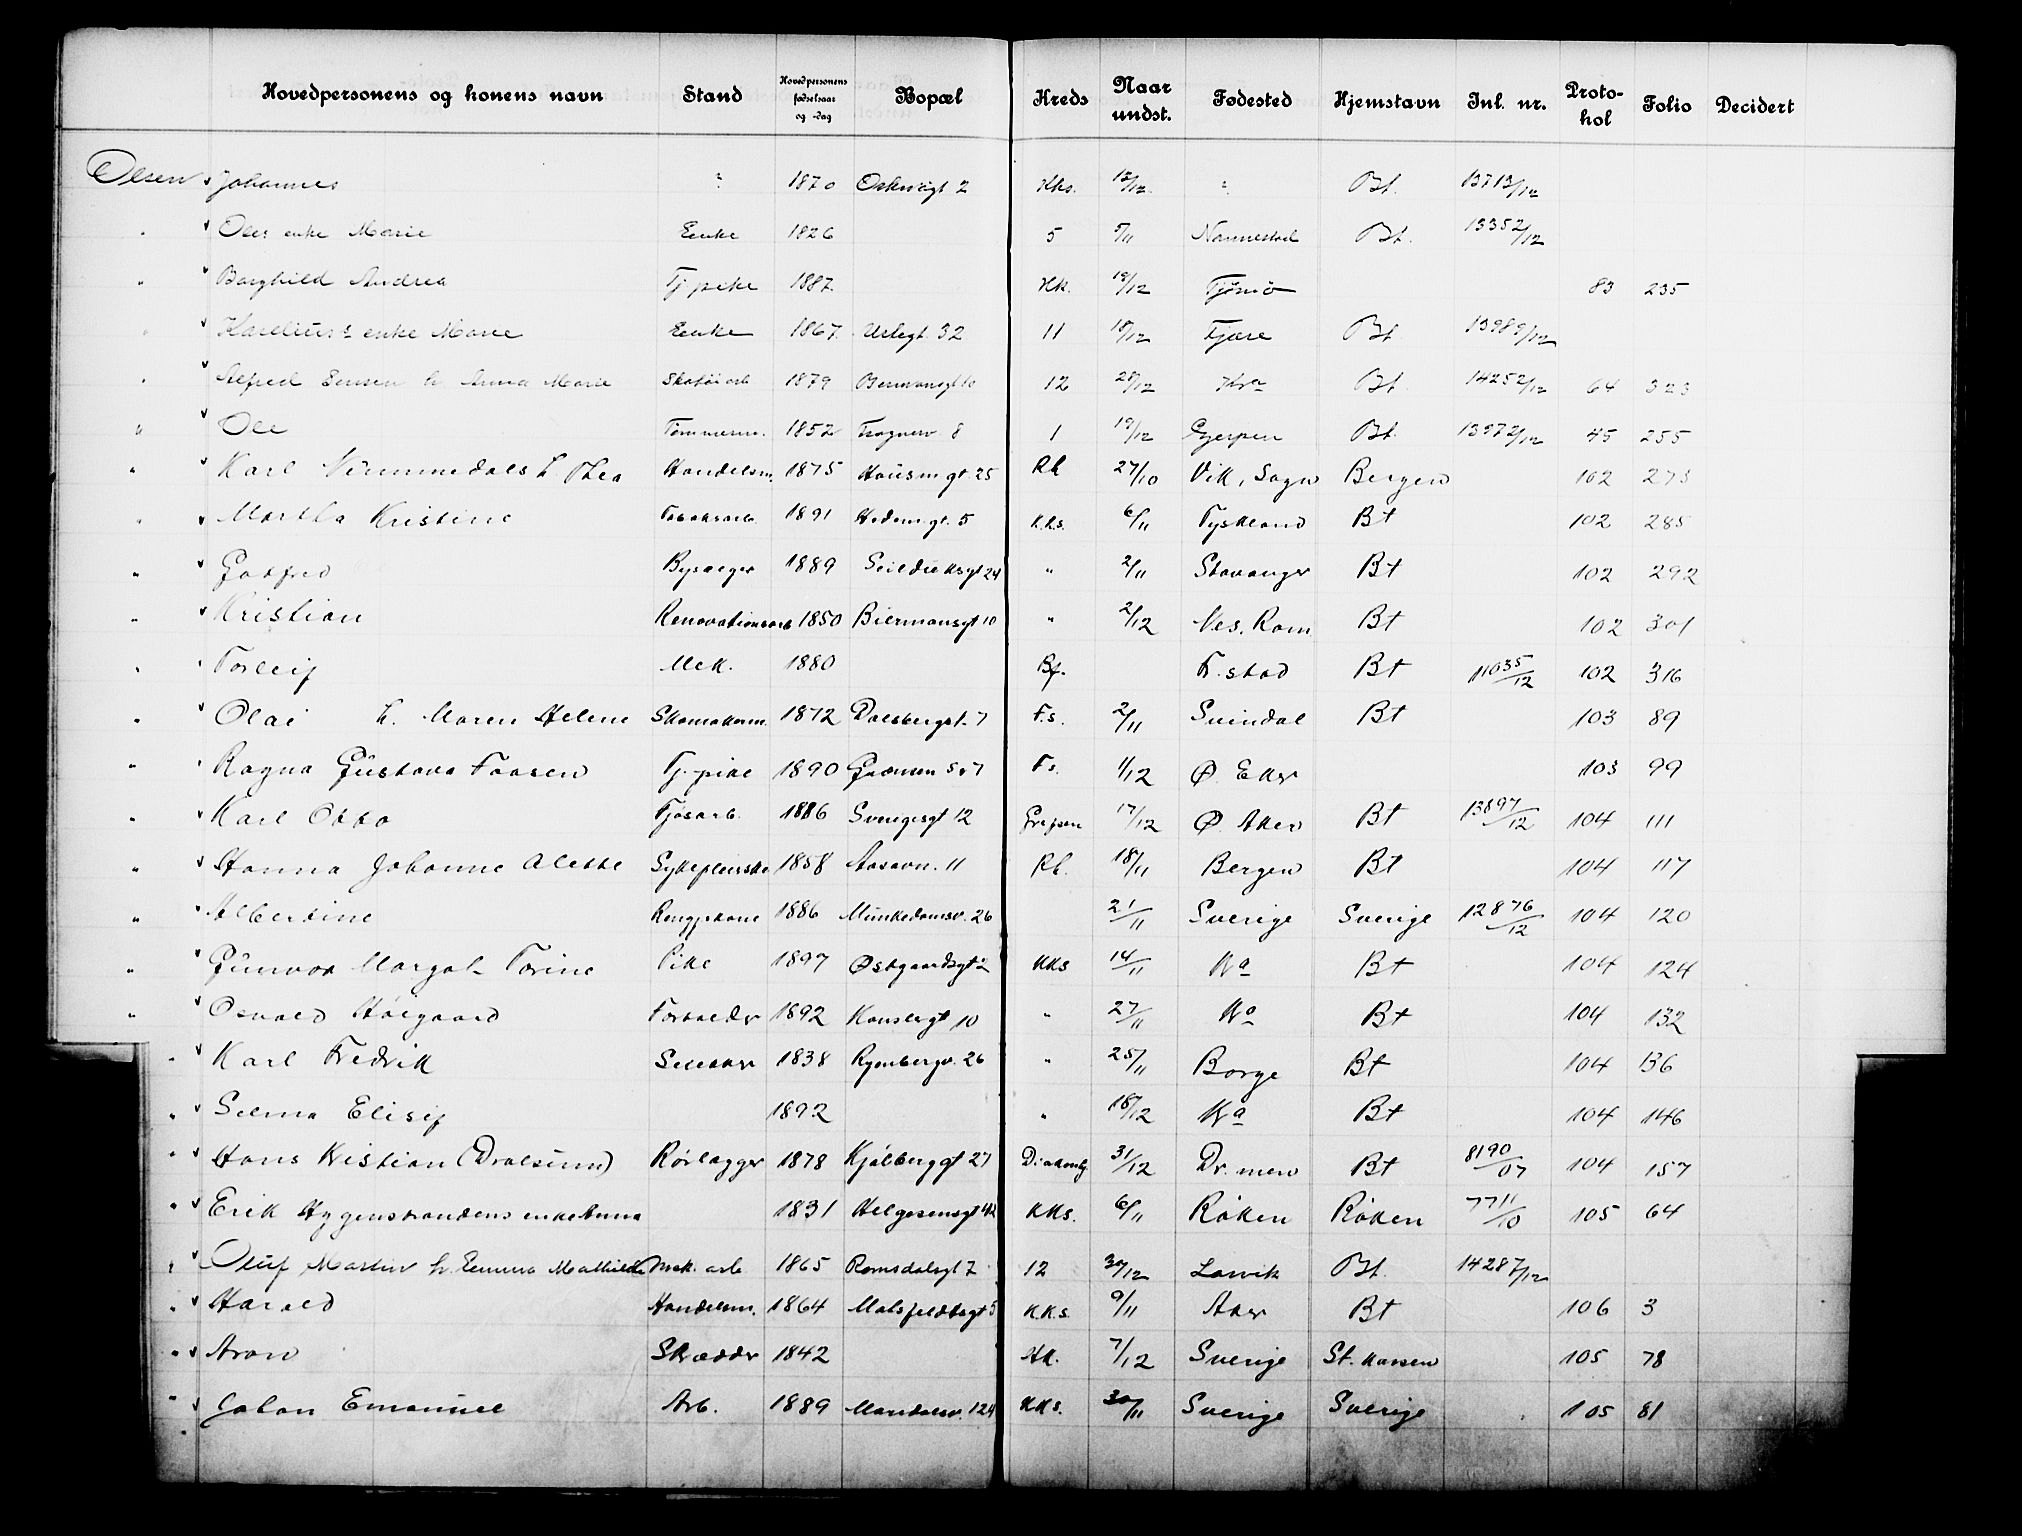 Hovedpersonens og konens navn Stand Hovedpersonens fødselsaar og -dag Bopæl Kreds Naar undst. Fødested Hjemstavn Inl. nr. Protokol Folio Decidert
Olsen Johannes " 1870 2 Kks. 12/12 " Bt. 13713/12
" Oles enke Marie Enke 1826 5 5/11 Nannestad Bt. 13352/12
" Borghild Andrea Tj.pike 1887. Kk. 19/12 Tjømø 83 235
" Karelius's enke Marie Enke 1867. Urtegt. 32 11 18/12 Fjære Bt. 13989/12
" Alfred Jensen h. Anna Marie Skotøiarb 1879 Biermansgt 10 12 28/12 Kra Bt. 14252/12 64 323
" Ole Tømmerm. 1852 Frognerv. 8 1 19/12 Gjerpen Bt. 13972/12 45 255
" Karl Nummedals h. Thea Handelsm. 1875 Hausm.gt. 25 Rk 27/10 Vik, Sogn Bergen 102 273
" Martha Kristine Tobaksarb. 1891 Hedem.gt. 5 K.k.s. 6/11 Tyskland Bt 102 285
" Gotfred Bysæger 1889 Seilduksgt 24 " 2/11 Stavanger Bt 102 292
" Kristian Renovationsarb 1850 Biermansgt 10 " 2/12 Nes, Rom Bt 102 301
" Torleif Mek. 1880 Bf. F.stad Bt 11035/12 102 316
" Olai h. Maren Helene Skomakerm. 1872 Dalsbergst. 7 F.s. 2/11 Svindal Bt 103 89
" Ragna Gustava Faasen Tj.pike 1890 5 Fs. 1/12 Ø. Eker 103 99
" Karl Otto Fjøsarb. 1886 Svengsgt 12 Gripsen 17/12 Ø. Aker Bt 13897/12 104 111
" Hanna Johanne Alette Sykepleierske 1858 Aasavn. 11 Rk. 18/11 Bergen Bt 104 117
" Albertine Rengj.kone 1886 Munkedamsv. 26 21/11 Sverige Sverige 12876/12 104 120
" Gunvor Margot Torine Pike 1897 Østgaardsgt 2 KKs 14/11 Kra Bt 104 124
" Osvald Høigaard Forvalder 1892 Hauslergt 10 " 27/11 Kra Bt 104 132
" Karl Fredrik Slakter 1838 Ryenbergv. 26 " 25/11 Borge Bt 104 136
" Selma Elisif 1892 " 18/12 Kra Bt 104 146
" Hans Kristian (Dralsum) Rørlægger 1878 Kjølberggt 27 Diakonhj 31/12 Dr.men Bt 8190/07 104 157
" Erik Hygenstrandens enke Anna 1831 Helgesensgt 42 KKs. 6/11 Røken Røken 7711/10 105 64
" Oluf Martin h. Emma Mathilde mek. arb. 1865 Romsdalsgt 7 12 30/12 Larvik Bt. 14287/12
" Harald Handelsm. 1864 Malsfeldtsgt 5 K.K.s. 9/11 Aker Bt 106 3
" Aron Skrædder 1842 Kk. 7/12 Sverige St. Hansen 105 78
" Johan Emanuel Arb. 1889 Mandalsv. 124 KKs. 30/11 Sverige Sverige 105 81